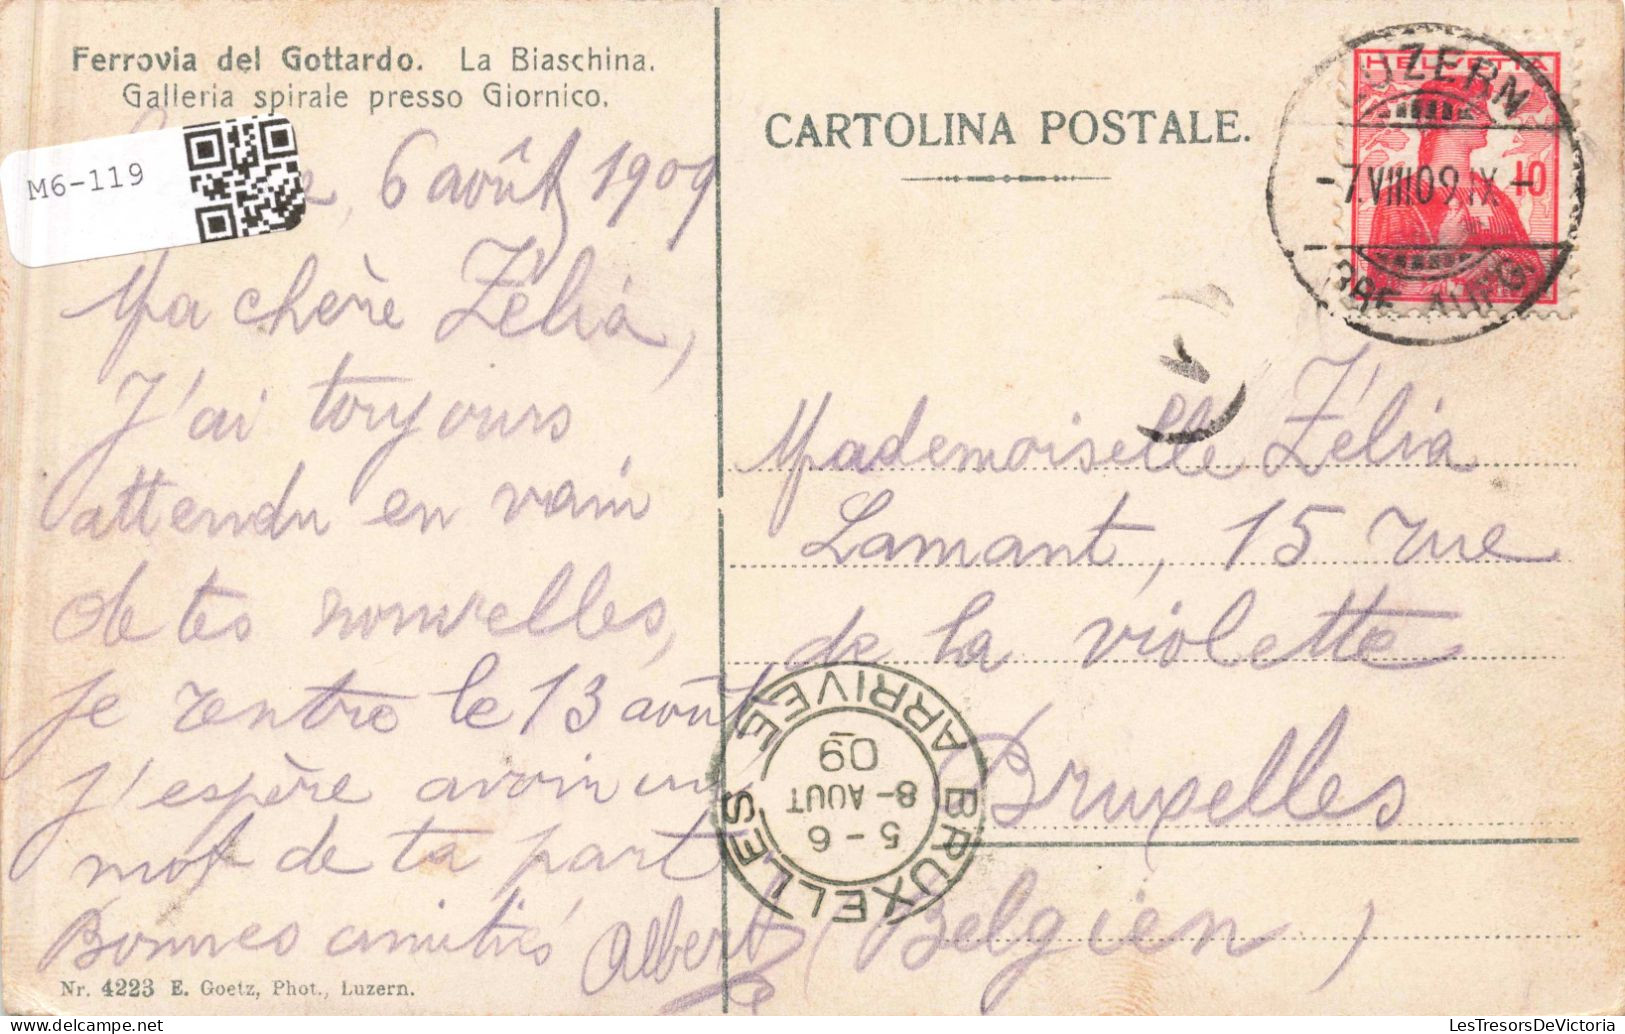 Ferrovia del Gottardo. La Biaschina.
Galleria spirale presso Giornico.
M6-119
6 août 1909
Ma chère Zélia,
J'ai toujours
attendu en vain
de tes nouvelles,
je rentre le 13 août
j'espère avoir un
mot de ta part
Bonnes amitiés Albert
Nr. 4223 E. Goetz, Phot., Luzern.
CARTOLINA POSTALE.
HELVETIA
10
LUZERN
-7.VIII.09.IX-
BRF. AUFG.
Mademoiselle Zélia
Lamant, 15 rue
de la violette
Bruxelles
(Belgien)
BRUXELLES ARRIVEE
5-6
8-AOUT
09
LesTresorsDeVictoria